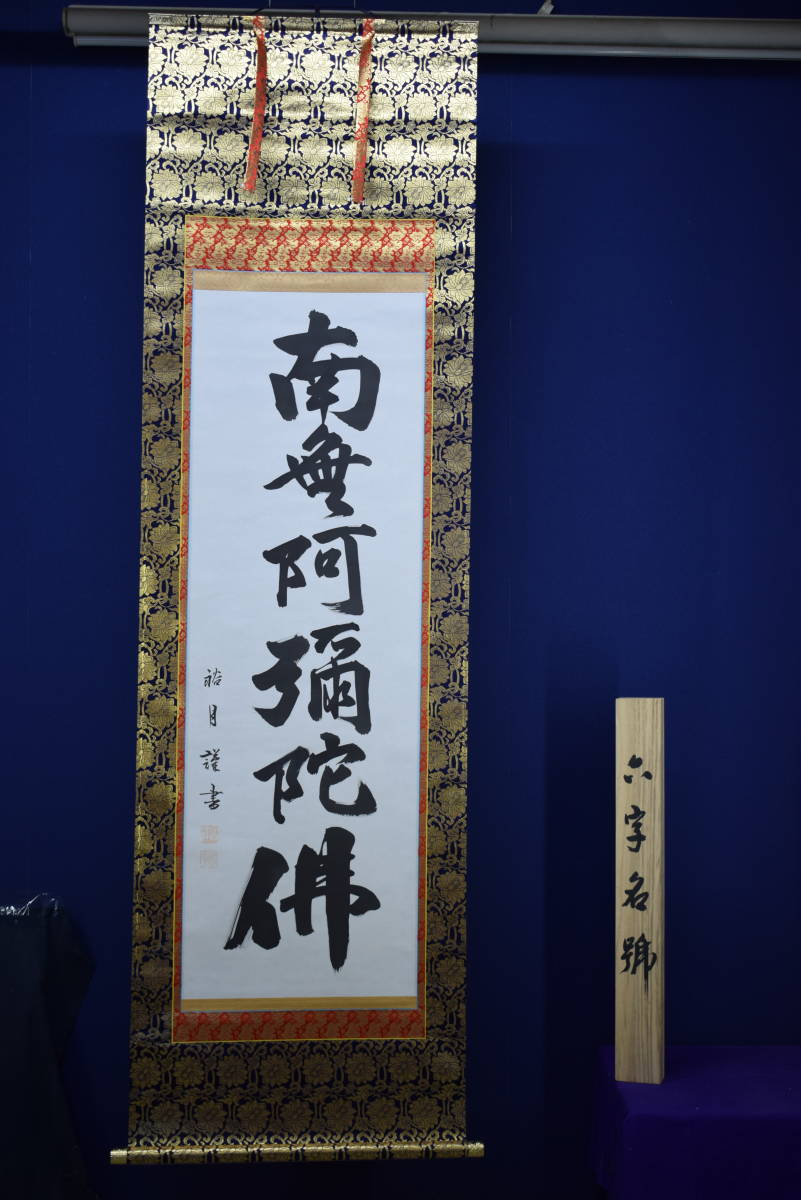 南無阿彌陀佛
裕月謹書
六字名號